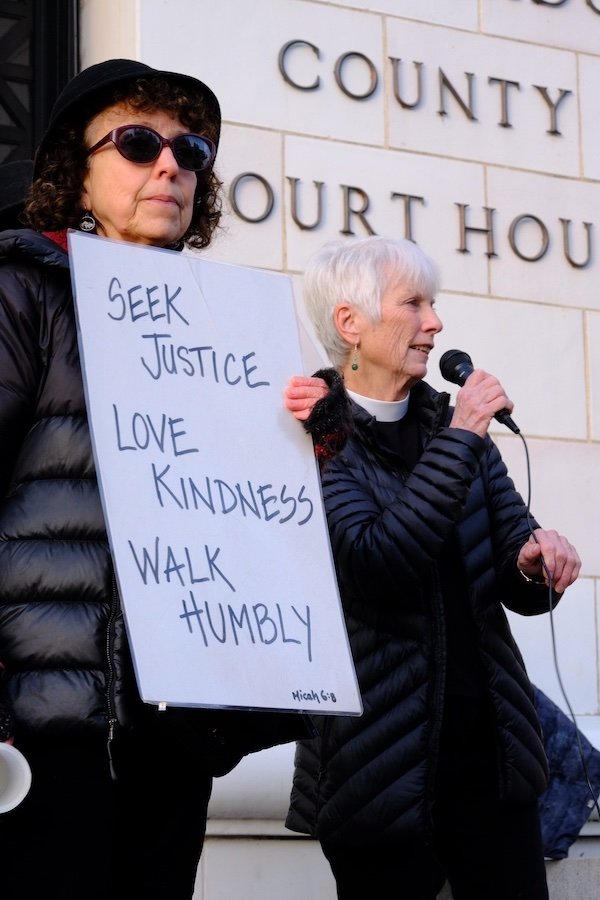 COUNTY
COURT HOU
SEEK
JUSTICE
LOVE
KINDNESS
WALK
HUMBLY
Micah 6:8